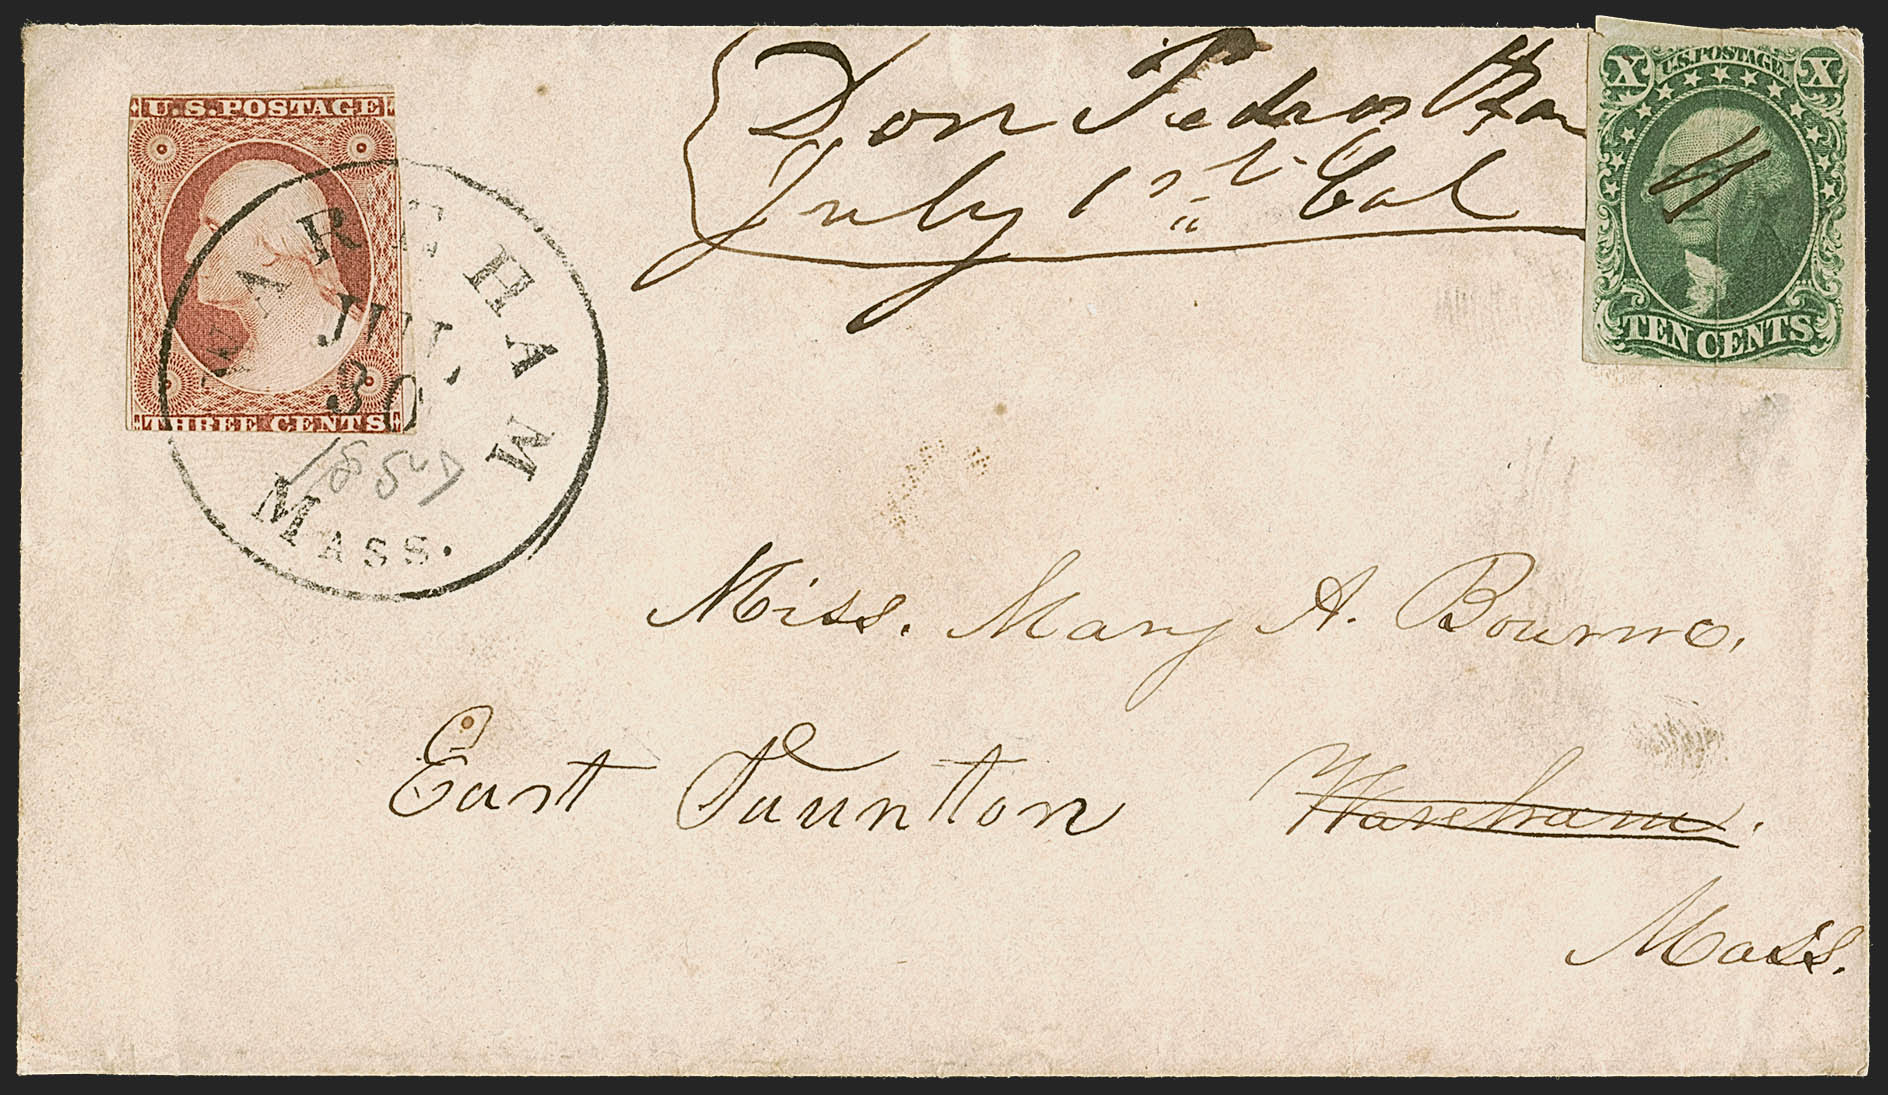 U.S. POSTAGE
THREE CENTS
WAREHAM
JUL
30
MASS.
Don Pedros Bar
July 1st Cal
X U.S. POSTAGE. X
TEN CENTS
Miss. Mary A. Bourne.
East Taunton Wareham.
Mass.